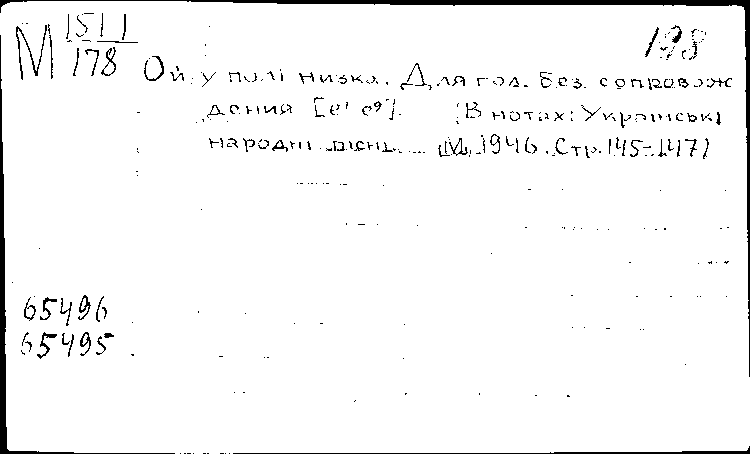 М 1511
178
198
Ой у полі низка. Для гол. без сопровож
дения [e¹ g²]. [В нотах: Українські
народні пісні. М. 1946. Стр. 145-147]
65496
65495